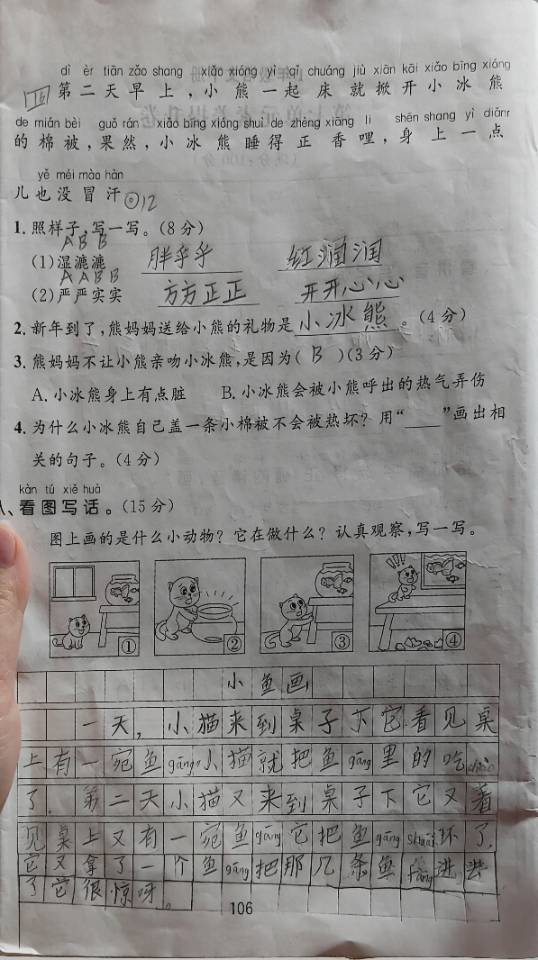 dì èr tiān zǎo shang xiǎo xióng yì qǐ chuáng jiù xiān kāi xiǎo bīng xióng
12 第二天早上,小熊一起床就掀开小冰熊
de mián bèi guǒ rán xiǎo bīng xióng shuì de zhèng xiāng li shēn shang yì diǎnr
的棉被,果然,小冰熊睡得正香哩,身上一点
yě méi mào hàn
儿也没冒汗。12
1. 照样子,写一写。(8分)
ABB
(1)湿漉漉 胖乎乎 红润润
AABB
(2)严严实实 方方正正 开开心心
2. 新年到了,熊妈妈送给小熊的礼物是 小冰熊 。(4分)
3. 熊妈妈不让小熊亲吻小冰熊,是因为( B )(3分)
A. 小冰熊身上有点脏 B. 小冰熊会被小熊呼出的热气弄伤
4. 为什么小冰熊自己盖一条小棉被不会被热坏?用“____”画出相
关的句子。(4分)
kàn tú xiě huà
、看图写话。(15分)
图上画的是什么小动物?它在做什么?认真观察,写一写。
① ② ③ ④
小鱼画
一天,小猫来到桌子下它看见桌
上有一宛鱼gāng,小猫就把鱼gāng里的吃
了.第二天小猫又来到桌子下它又看
见桌上又有一宛鱼gāng它把鱼gāng shuāi坏了.
它又拿了一个鱼gāng把那几条鱼fàng进去
了它很惊呀。
106